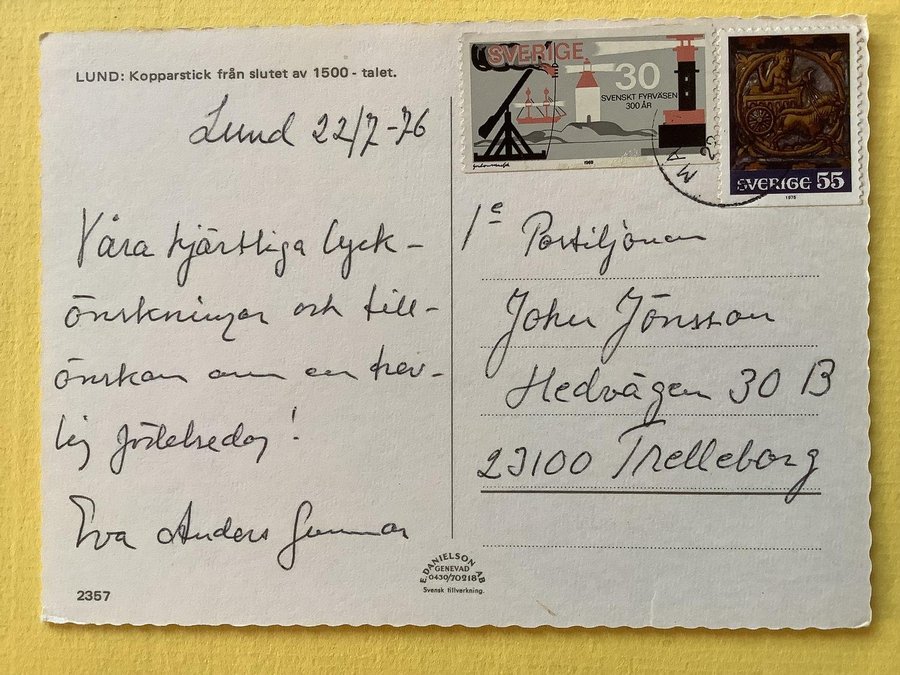 LUND: Kopparstick från slutet av 1500 - talet.
Lund 22/7-76
Våra hjärtliga lyck-
önskningar och till-
önskan om en trev-
lig födelsedag!
Eva Anders Gunnar
2357
SVERIGE
30
SVENSKT FYRVÄSEN
300 ÅR
1969
SVERIGE 55
1975
MA
23
1e Postiljonen
John Jönsson
Hedvägen 30 B
23100 Trelleborg
E. DANIELSON AB
GENEVAD
0430/70218
Svensk tillverkning.